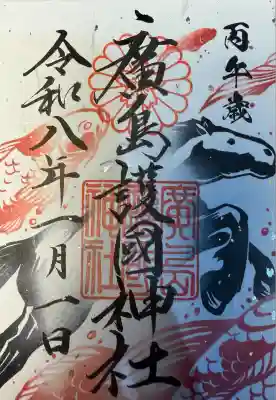 丙午歳
廣島護國神社
令和八年一月一日
廣島護國神社